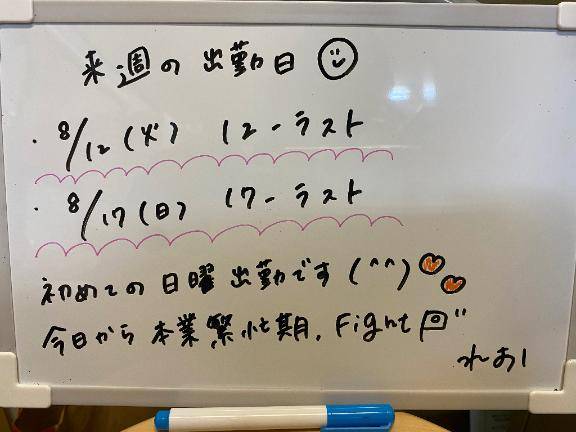 来週の出勤日
・8/12(火) 12-ラスト
・8/17(日) 17-ラスト
初めての日曜出勤です(^^)
今日から本業繁忙期、Fight